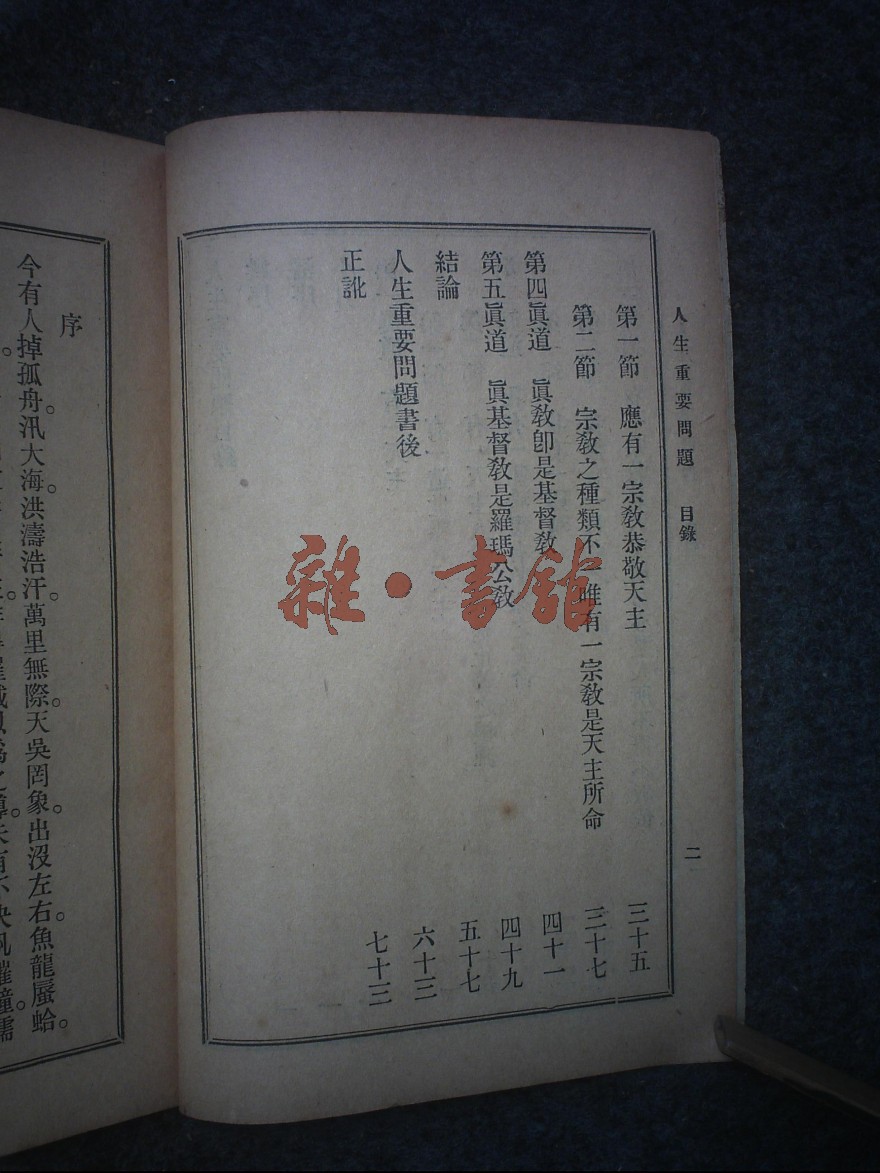 人生重要問題 目錄 二
第一節 應有一宗教恭敬天主 三十五
第二節 宗教之種類不一唯有一宗教是天主所命 三十七
第四眞道 眞教卽是基督教 四十一
第五眞道 眞基督教是羅瑪公教 四十九
結論 五十七
人生重要問題書後 六十三
正訛 七十三
雜·書館
序
今有人掉孤舟。汎大海。洪濤浩汗。萬里無際。天吳罔象。出沒左右。魚龍蜃蛤。